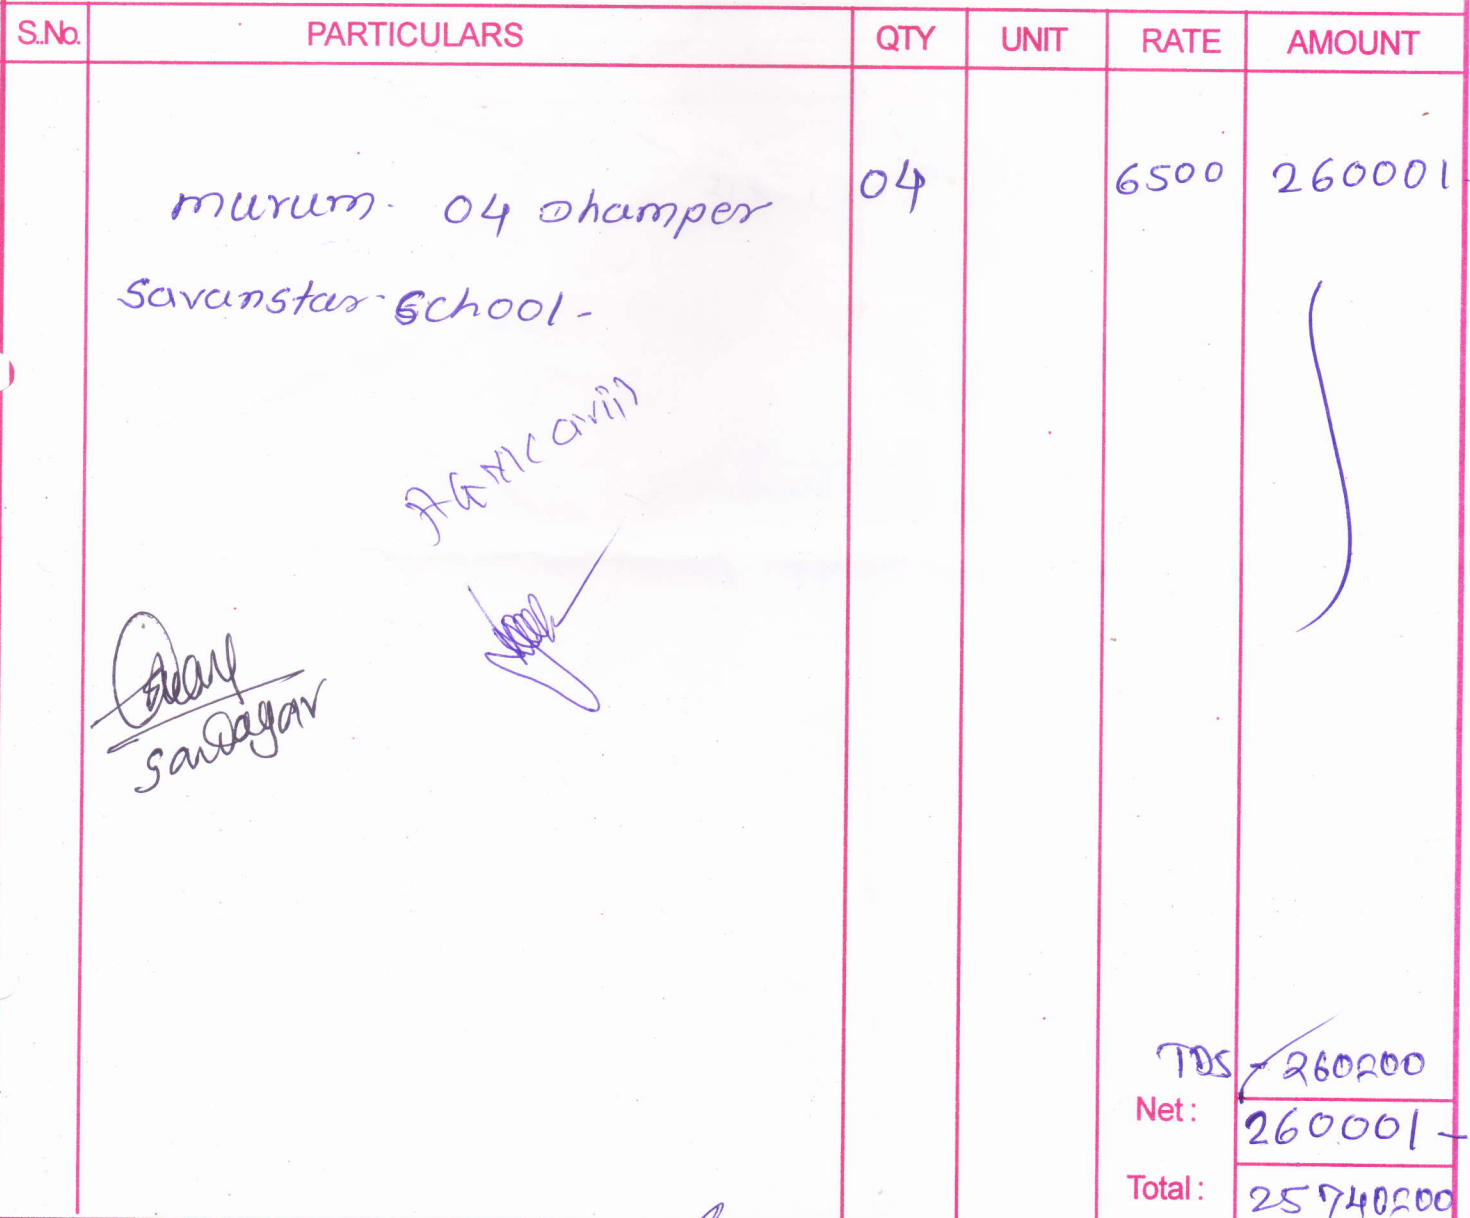 S.No. PARTICULARS QTY UNIT RATE AMOUNT
murum. 04 Dhamper 04 6500 26000/-
Savanstar School -
TDS - 260=00
Net : 26000/-
Total : 25740=00